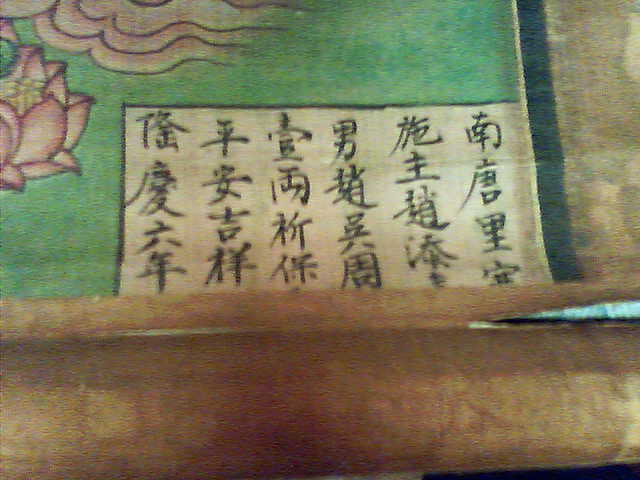 南唐里
施主趙添
男趙吳周
壹両祈保
平安吉祥
隆慶六年